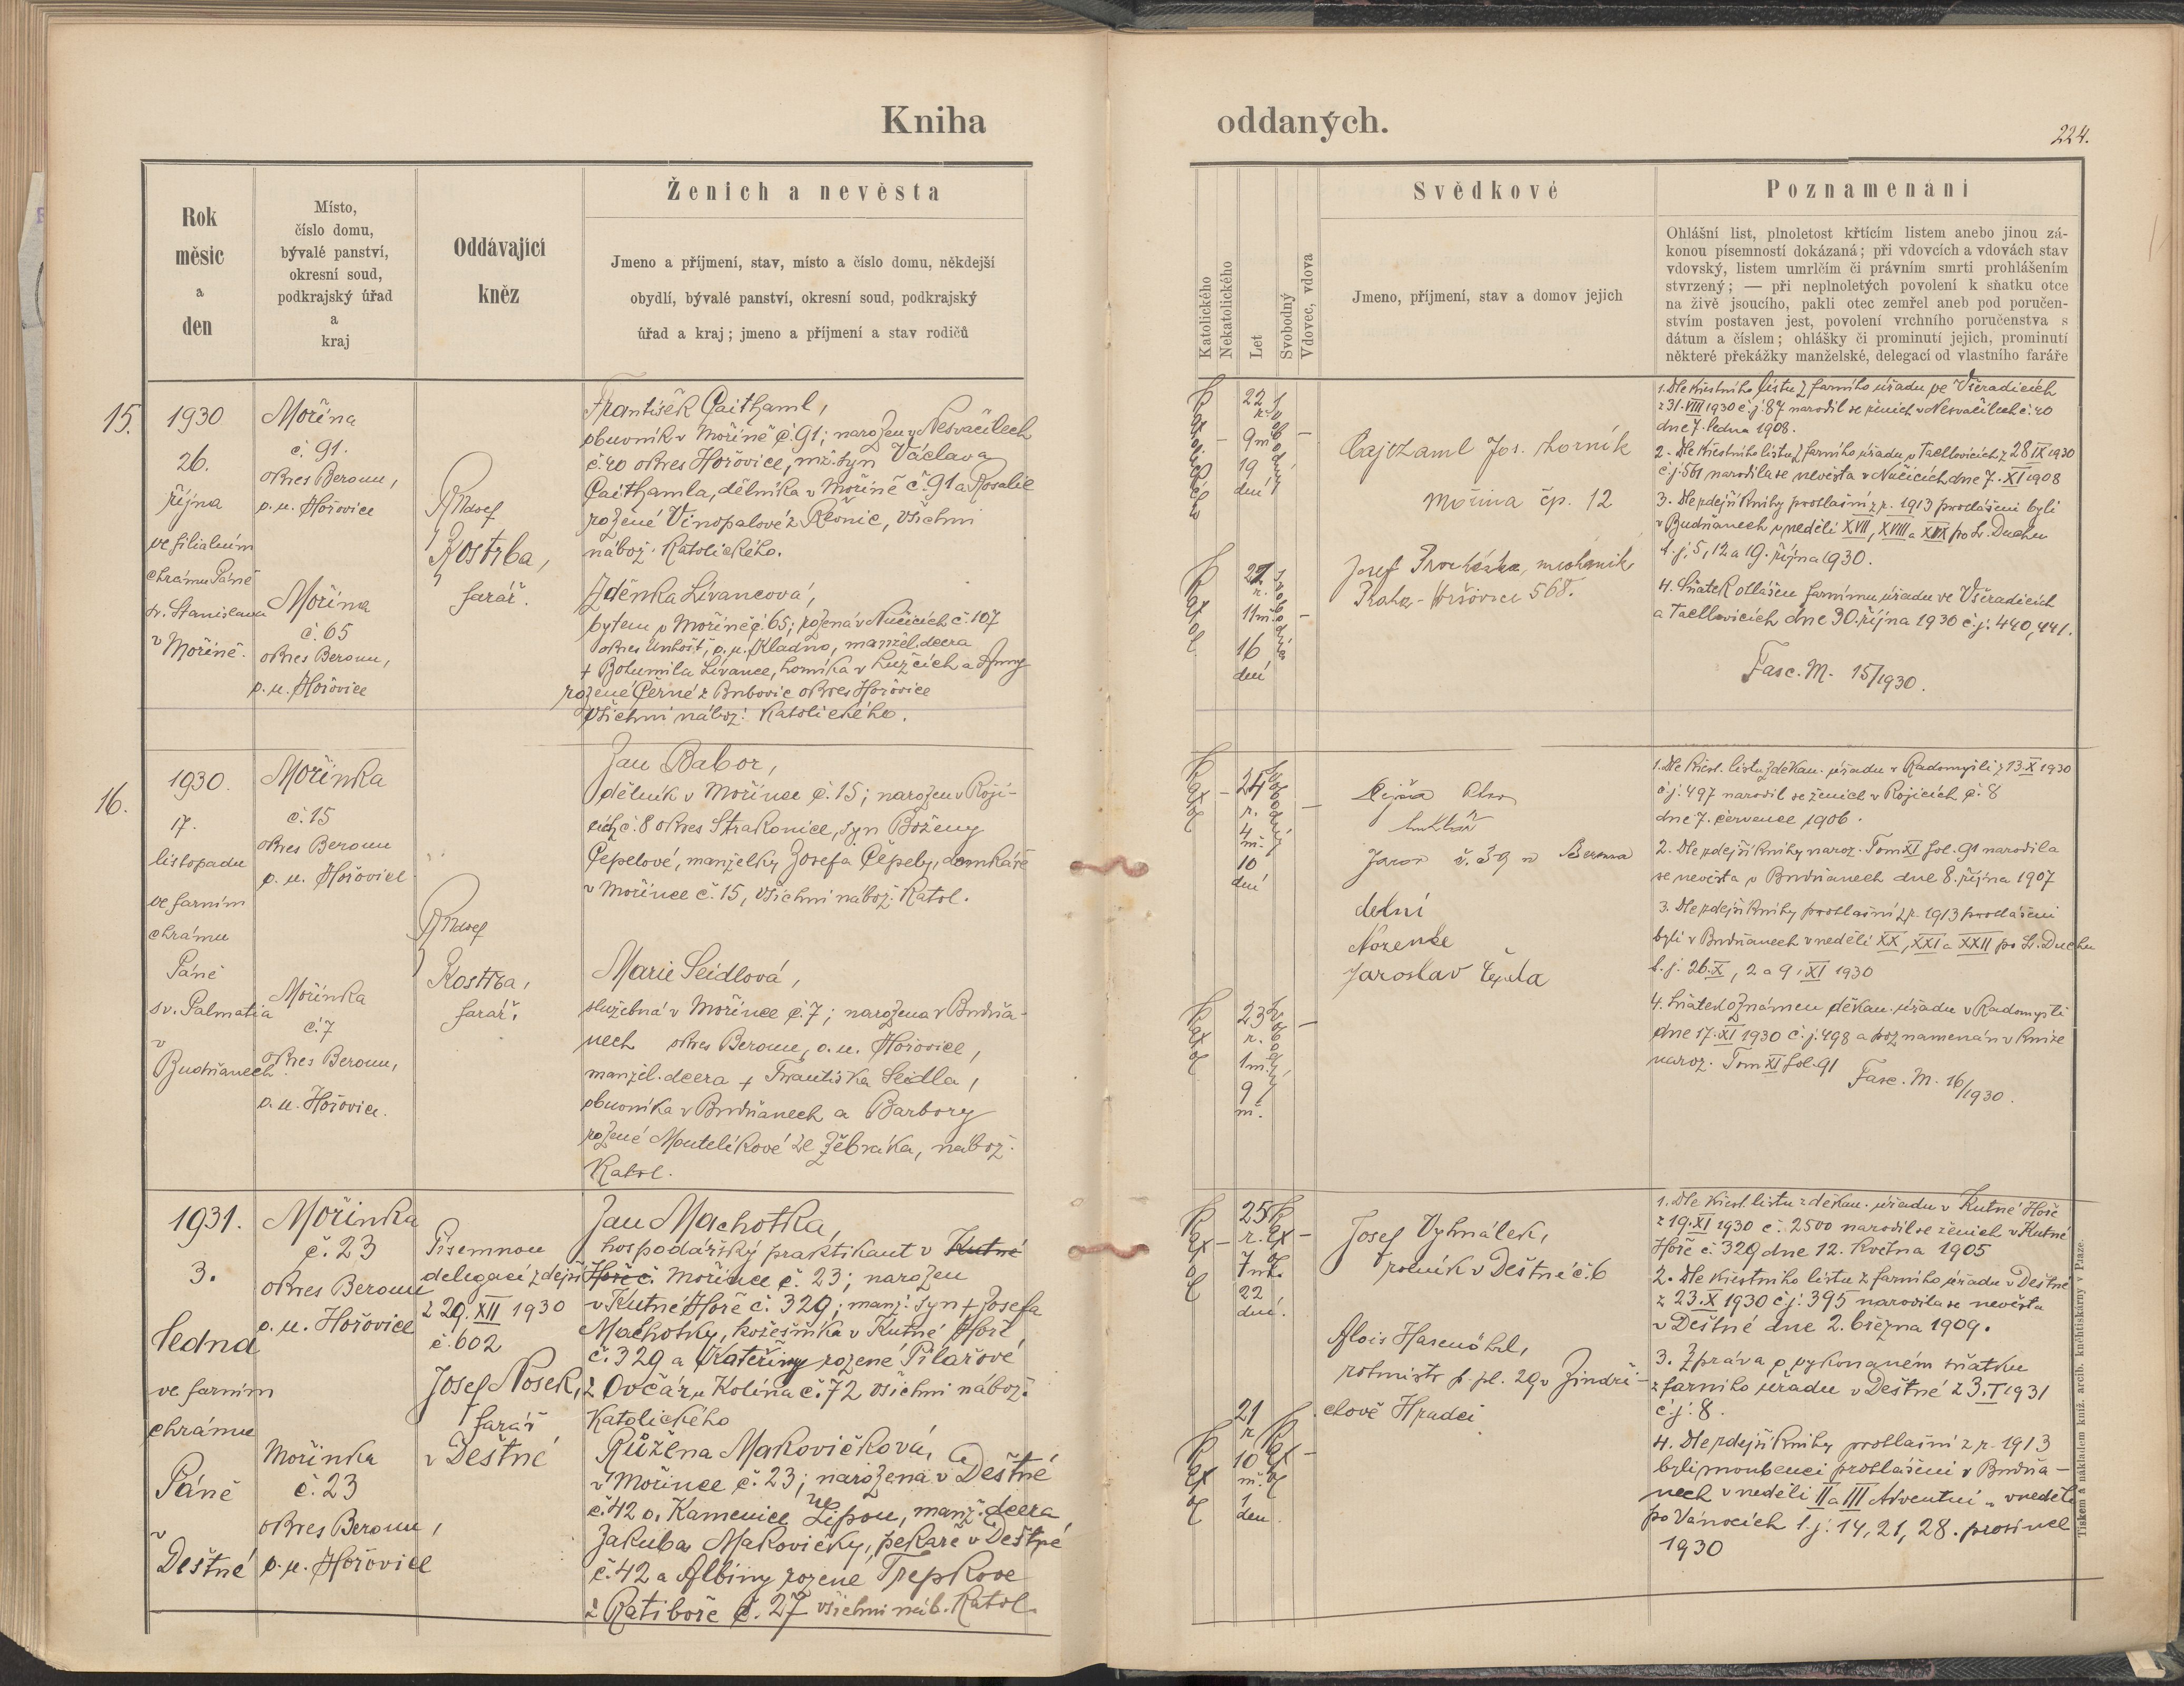 Kniha oddaných.
224.
Rok měsíc a den
Místo, číslo domu, bývalé panství, okresní soud, podkrajský úřad a kraj
Oddávající kněz
Ženich a nevěsta
Jmeno a příjmení, stav, místo a číslo domu, někdejší
obydlí, bývalé panství, okresní soud, podkrajský
úřad a kraj; jmeno a příjmení a stav rodičů
Katolického
Nekatolického
Let
Svobodný
Vdovec, vdova
Svědkové
Jmeno, příjmení, stav a domov jejich
Poznamenání
Ohlášní list, plnoletost křticím listem anebo jinou zá-
konou písemností dokázaná; při vdovcích a vdovách stav
vdovský, listem umrlčím či právním smrti prohlášením
stvrzený; — při neplnoletých povolení k sňatku otce
na živě jsoucího, pakli otec zemřel aneb pod poručen-
stvím postaven jest, povolení vrchního poručenstva s
dátum a číslem; ohlášky či prominutí jejich, prominutí
některé překážky manželské, delegací od vlastního faráře
15.
1930
26.
října
ve filialním
chrámu Páně
sv. Stanislava
v Mořině.
Mořina
č. 91.
okres Beroun,
p. u. Hořovice
Mořina
č. 65
okres Beroun,
p. u. Hořovice
Josef
Kostrba,
farář.
František Čaithaml,
obuvník v Mořině č. 91; narozen v Nesvačilech
č. 20 okres Hořovice, mž. syn Václava
Čaithamla, dělníka v Mořině č. 91 a Rosalie
rozené Vinopalové z Řevnic, všichni
nábož. katolického.
Zděnka Lívancová,
bytem v Mořině č. 65; rozená v Nučicích č. 107
okres Unhošť, p. u. Kladno, manžel. dcera
+ Bohumila Lívance, horníka v Lužcích a Anny
rozené Černé z Bubovic okres Hořovice
všichni nábož. katolického.
22 r.
9 m.
19
dní
22 r.
11 m.
16
dní
Čajtzaml Jos. horník
Mořina čp. 12
Josef Procházka, mechanik
Praha - Vršovice 568.
1. Dle křestního listu z farního úřadu ve Všeradicích
z 31. VIII 1930 č. j. 87 narodil se ženich v Nesvačilech č. 20
dne 7. ledna 1908.
2. Dle křestního listu z farního úřadu v Tachlovicích z 28 IX 1930
č. j. 561 narodila se nevěsta v Nučicích dne 7. XI 1908
3. Dle zdejší knihy prohlašní z r. 1913 prohlášeni byli
v Budňanech v neděli XVII, XVIII a XIX po sv. Duchu
t. j. 5, 12 a 19. října 1930.
4. Sňatek ohlášen farnímu úřadu ve Všeradicích
a Tachlovicích dne 30. října 1930 č. j. 440, 441.
Fasc. M. 15/1930.
16.
1930.
17.
listopadu
ve farním
chrámu
Páně
sv. Palmatia
v
Budňanech
Mořinka
č. 15
okres Beroun
p. u. Hořovice
Mořinka
č. 7
okres Beroun,
p. u. Hořovice.
Josef
Kostrba,
farář.
Jan Babor,
dělník v Mořince č. 15; narozen v Roji-
cích č. 8 okres Strakonice, syn Boženy
Čepelové, manželky Josefa Čepely, domkáře
v Mořince č. 15, všichni nábož. katol.
Marie Seidlová,
služebná v Mořince č. 7; narozena v Budňa-
nech okres Beroun, p. u. Hořovice,
manžel. dcera + Františka Seidla,
obuvníka v Budňanech a Barbory
rozené Moutelíkové ze Žebráka, nábož.
katol.
24
r.
4
m.
10
dní
23
r.
1 m.
9
Jaroslav Čepela
1. Dle křest. listu z děkan. úřadu v Radomyšli z 13. X 1930
č. j. 497 narodil se ženich v Rojicích č. 8
dne 7. července 1906.
2. Dle zdejší knihy naroz. Tom XI fol. 91 narodila
se nevěsta v Budňanech dne 8. října 1907
3. Dle zdejší knihy prohlašní z r. 1913 prohlášeni
byli v Budňanech v neděli XX, XXI a XXII po sv. Duchu
t. j. 26. X, 2 a 9. XI 1930
4. Sňatek oznámen děkan. úřadu v Radomyšli
dne 17. XI 1930 č. j. 498 a poznamenán v knize
naroz. Tom XI fol. 91
Fasc. M. 16/1930.
1931.
3.
ledna
ve farním
chrámu
Páně
v
Deštné
Mořinka
č. 23
okres Beroun
p. u. Hořovice
Mořinka
č. 23
okres Beroun,
p. u. Hořovice
Písemnou
delegací zdejší
z 29. XII 1930
č. 602
Josef Nosek,
farář
v Deštné
Jan Machotka,
hospodářský praktikant v Kutné
Hoře č. Mořince č. 23; narozen
v Kutné Hoře č. 329; manž. syn + Josefa
Machotky, kožešníka v Kutné Hoře
č. 329 a Kateřiny rozené Pilařové
z Ovčár u Kolína č. 72 všichni nábož.
katolického
Růžena Makovičková,
v Mořince č. 23; narozena v Deštné
č. 42 o. Kamenice n/ Lipou, manž. dcera
Jakuba Makovičky, pekaře v Deštné
č. 42 a Albiny rozené Trepkove
z Ratiboře č. 27 všichni náb. katol.
25
r.
7 m.
22
dní.
21
r.
10
m.
1
den
Josef Vyhnálek,
rolník v Deštné č. 6
Alois Hasenöhrl,
rotmistr p. pl. 29 v Jindři-
chově Hradci
1. Dle křest. listu z děkan. úřadu v Kutné Hoře
z 19. XI 1930 č. 2500 narodil se ženich v Kutné
Hoře č. 329 dne 12. května 1905
2. Dle křestního listu z farního úřadu v Deštné
z 23. X 1930 č. j. 395 narodila se nevěsta
v Deštné dne 2. března 1909.
3. Zpráva o vykonaném sňatku
z farního úřadu v Deštné z 3. I 1931
č. j. 8.
4. Dle zdejší knihy prohlašní z r. 1913
byli snoubenci prohlášeni v Budňa-
nech v neděli II a III Adventní a v neděli
po Vánocích t. j. 14, 21, 28. prosince
1930
Tiskem a nákladem kníž. arcib. knihtiskárny v Praze.